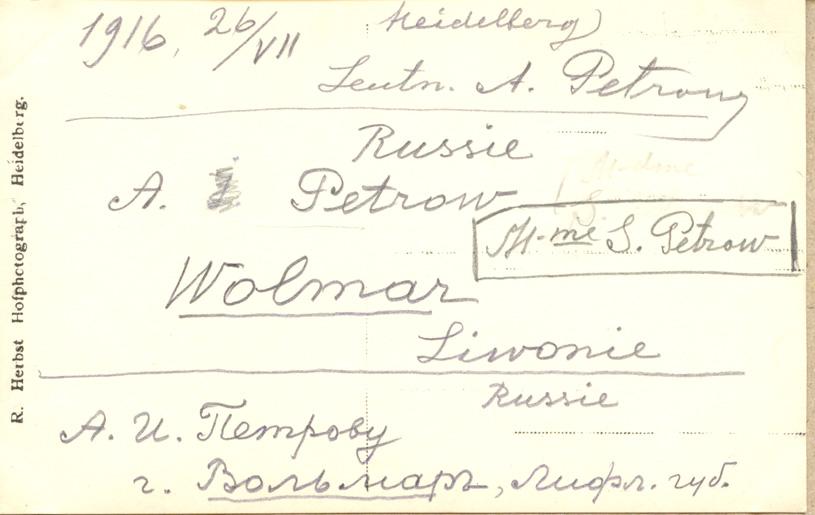 1916, 26/VII Heidelberg
Leutn. A. Petrow
Russie
A. Petrow
M-me S. Petrow
Wolmar
Liwonie
Russie
А. И. Петрову
г. Вольмаръ, Лифл. губ.
R. Herbst Hofphotograph, Heidelberg.